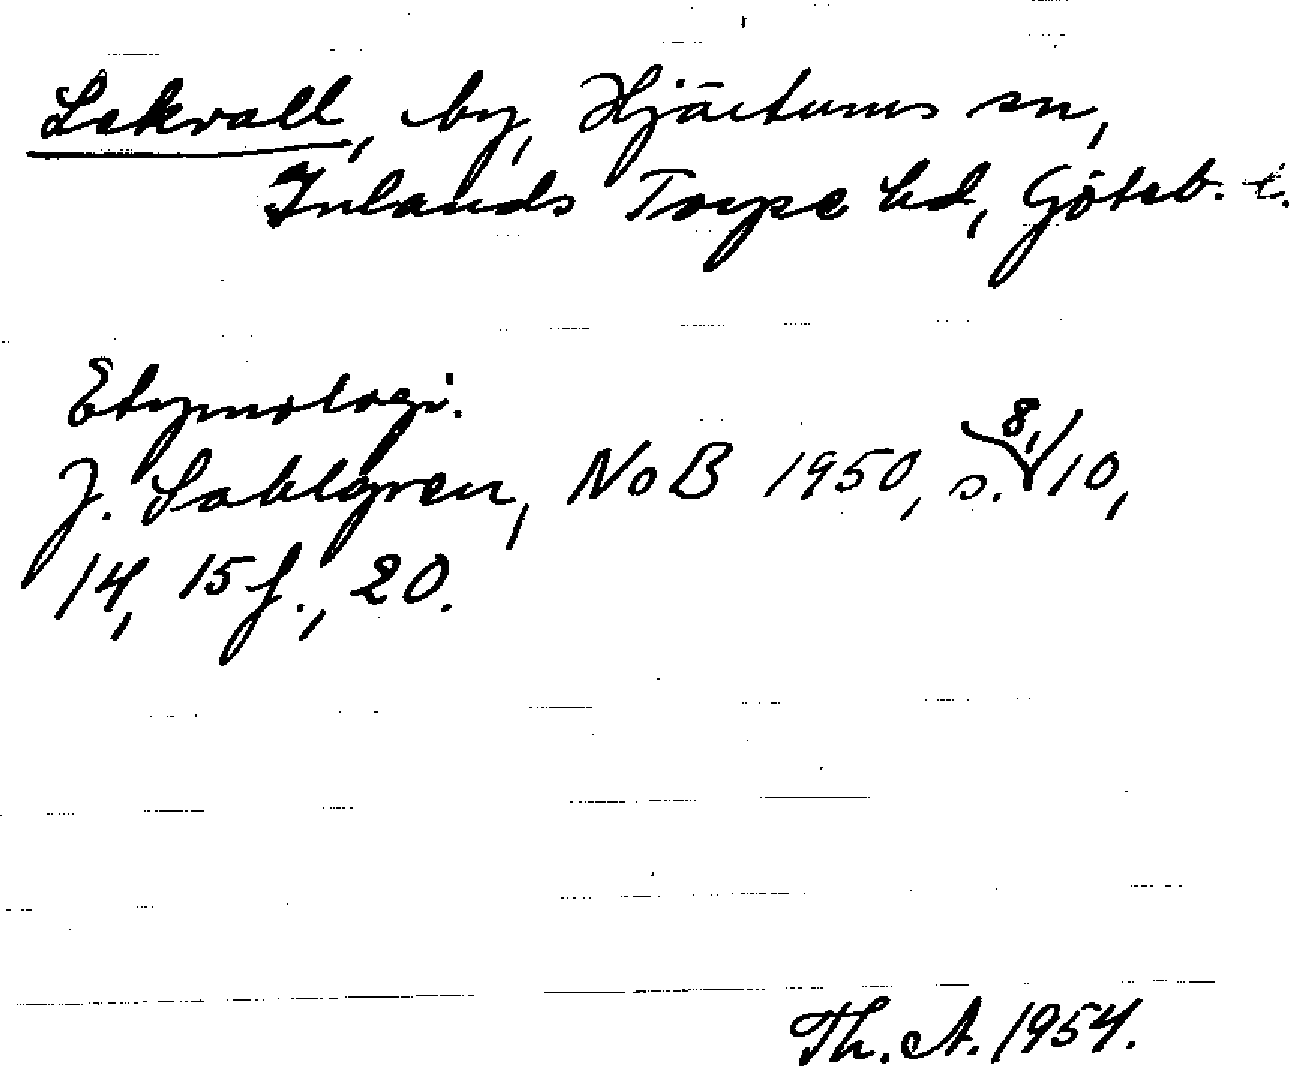 Lekvall, by, Hjärtums sn,
Inlands Torpe hd, Göteb. l.
Etymologi.
J. Sahlgren, NoB 1950, s. 8, 10,
14, 15 f., 20.
Th. A. 1954.